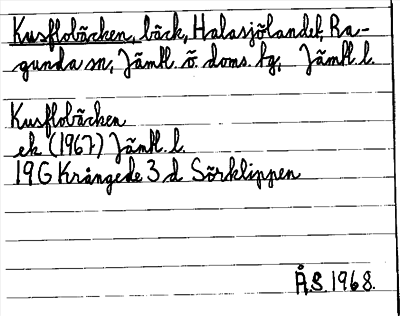 Kusflobäcken, bäck, Halasjölandet, Ra-
gunda sn, Jämtl. ö. doms. tg, Jämtl. l.
Kusflobäcken
ek (1967) Jämtl. l.
19G Krångede 3 d Sörklippen
Å.S. 1968.